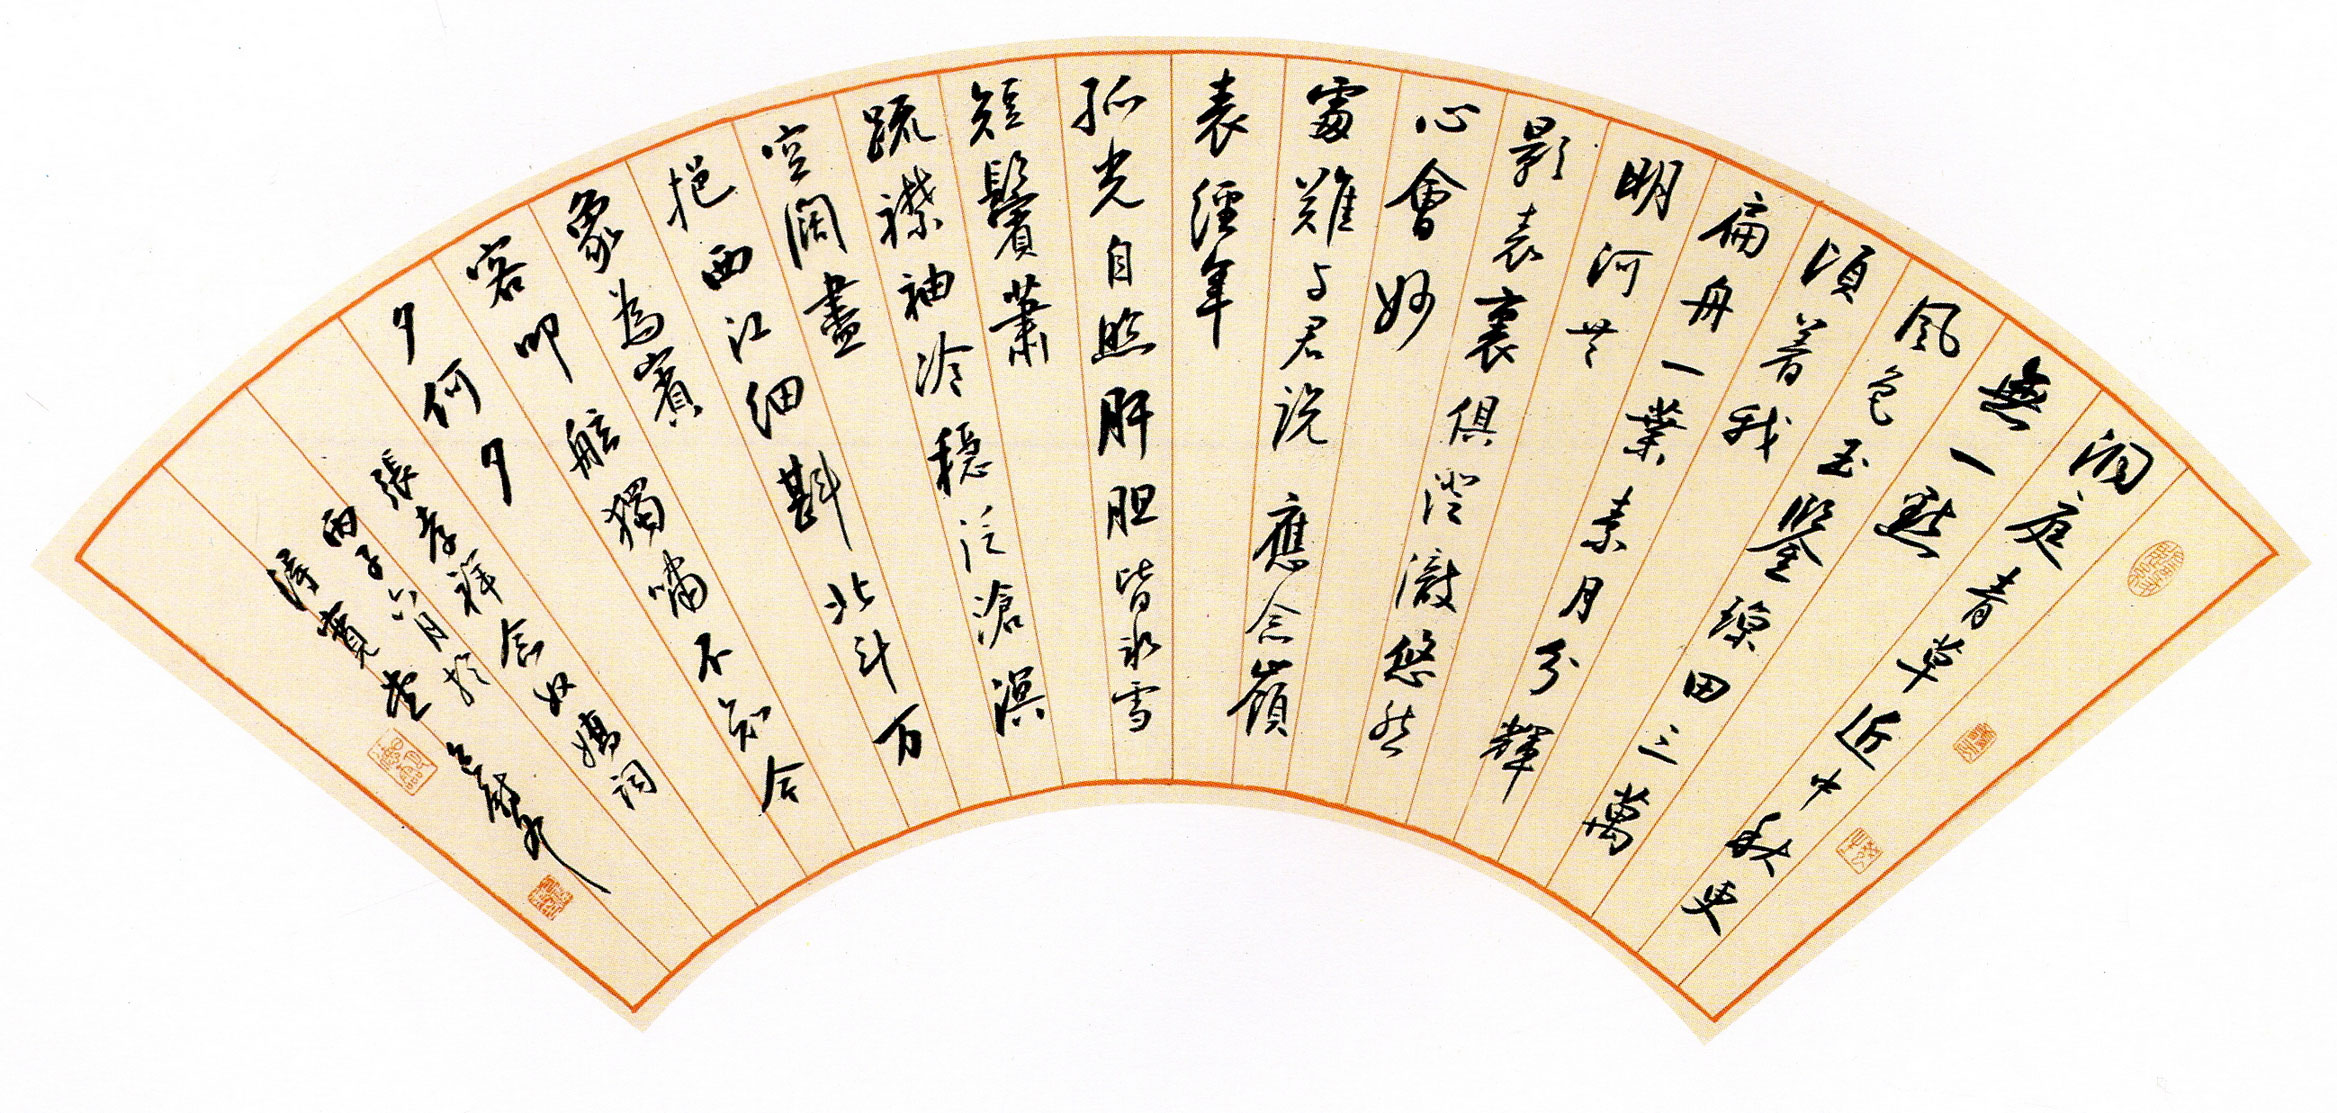 洞庭青草近中秋更
無一點
風色玉鑒琼田三萬
頃著我
扁舟一葉素月分輝
明河共
影表裏俱澄澈悠然
心會妙
處難与君説應念嶺
表經年
孤光自照肝胆皆氷雪
短鬢蕭
疏襟袖冷穩泛滄溟
空闊盡
挹西江細斟北斗万
象為賓
客叩舷獨嘯不知今
夕何夕
張孝祥念奴嬌詞
丙子六月於
得寬堂